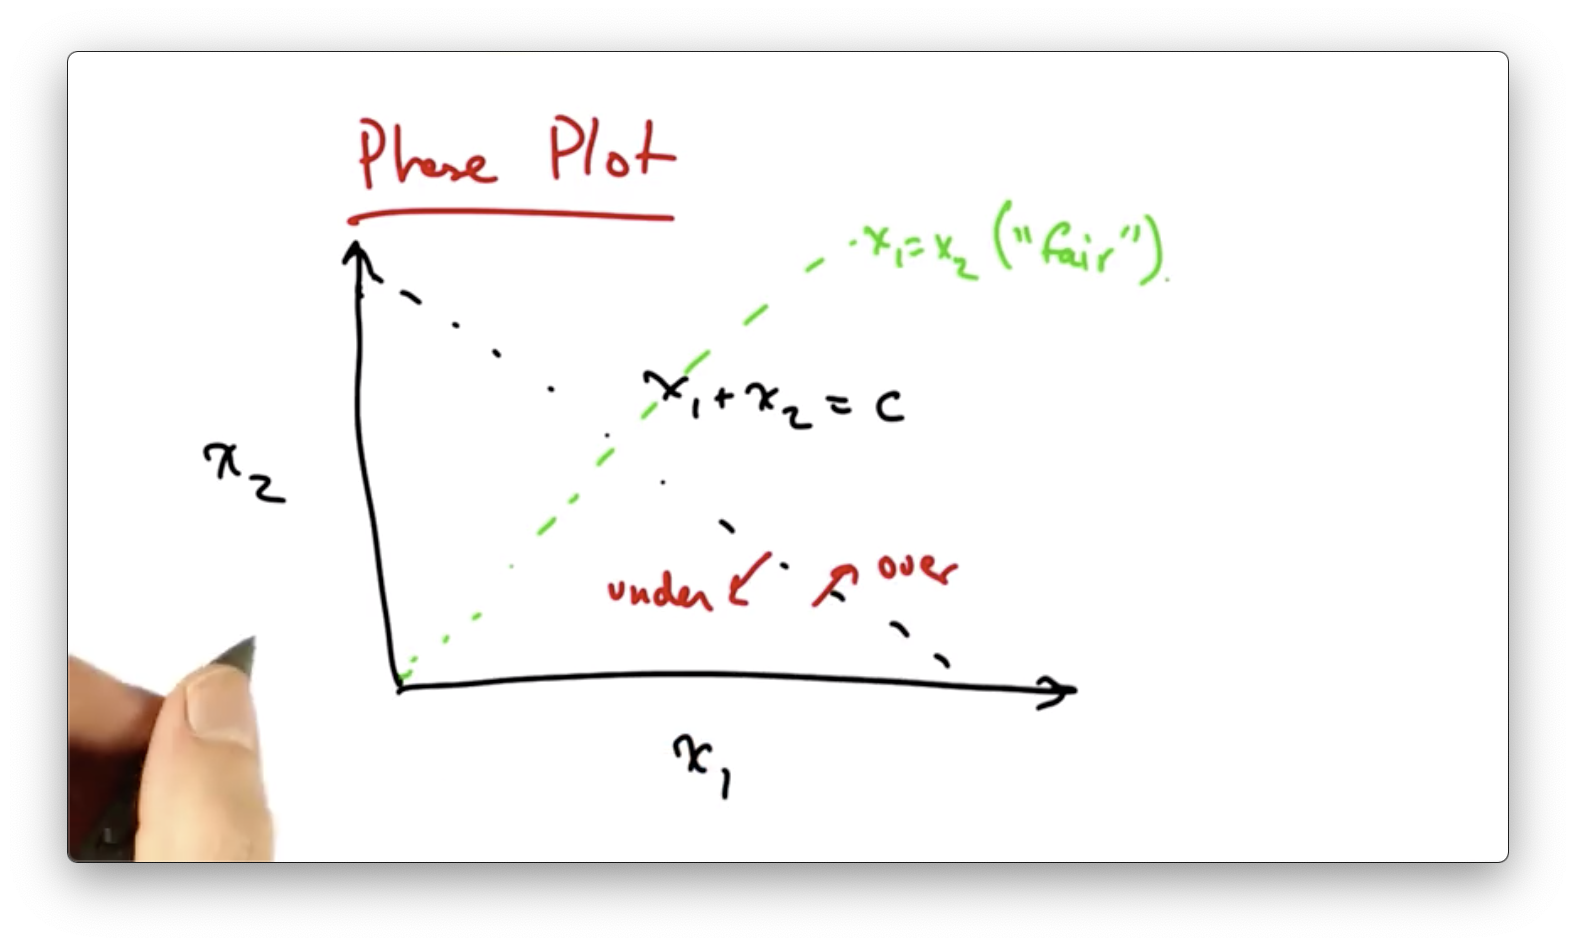 Phase Plot
x₁=x₂ ("fair")
x₁+x₂ = c
x₂
under
over
x₁